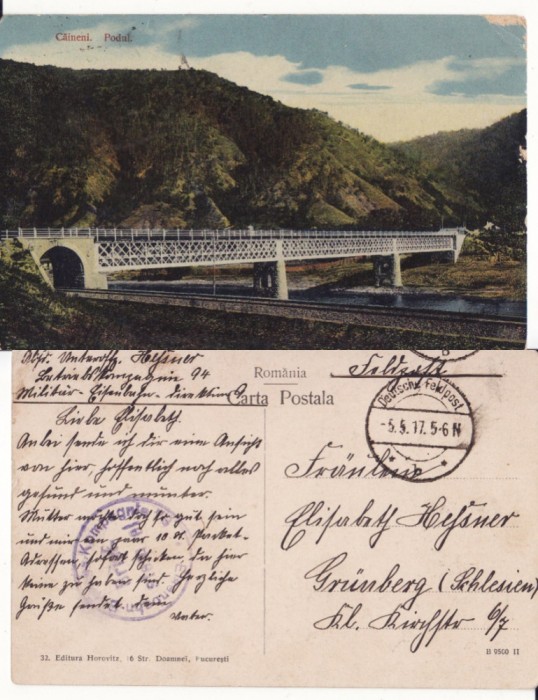 Câineni. Podul.
Abs. Unteroffz. Heßner
Betriebskompagnie 94
Militär-Eisenbahn-Direktion 9
România
Carta Postala
Feldpost
Deutsche Feldpost
-5.5.17. 5-6 N
Liebe Elisabeth.
Anbei sende ich dir eine Ansicht
von hier, hoffentlich noch alles
gesund und munter.
Mutter möchte so gut sein
und mir ein paar 10 St. Paket-
Adressen, sofort schicken da hier
keine zu haben sind. Herzliche
Grüße sendet dein
Vater.
Fräulein
Elisabeth Heßner
Grünberg (Schlesien)
Kl. Kirchstr 6/7
32. Editura Horovitz, 16 Str. Doamnei, Bucureşti
B 9560 II